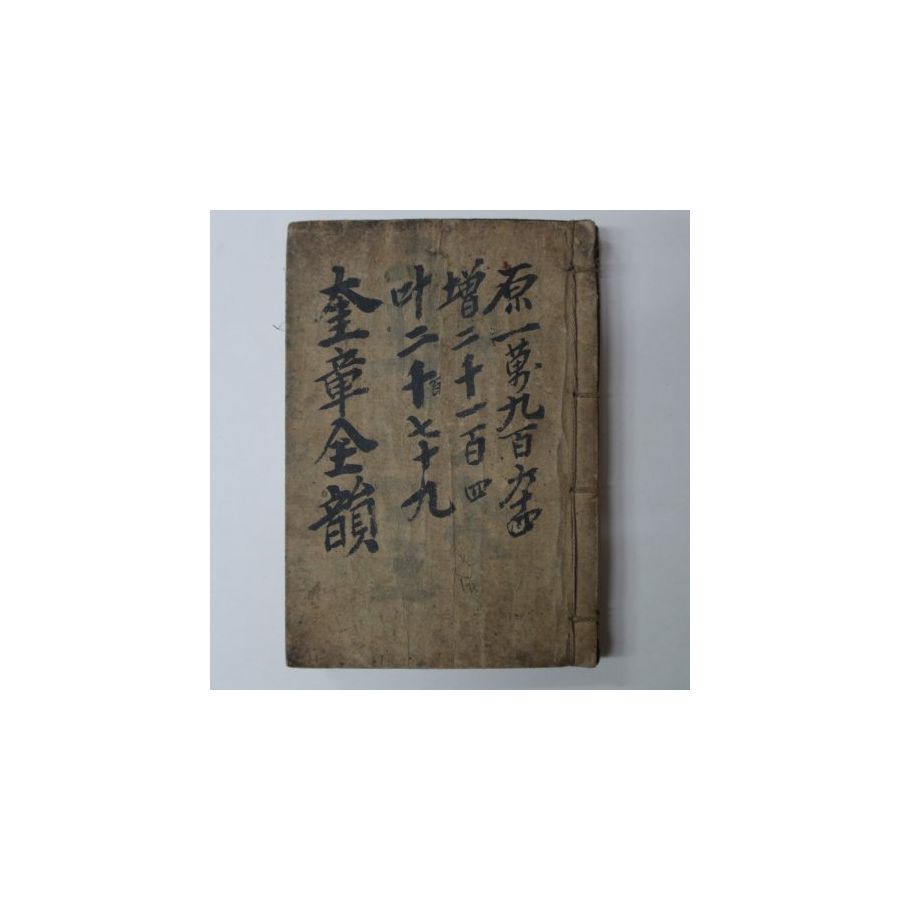 原一萬九百六十四
增二千一百四
叶二千百七十九
奎章全韻